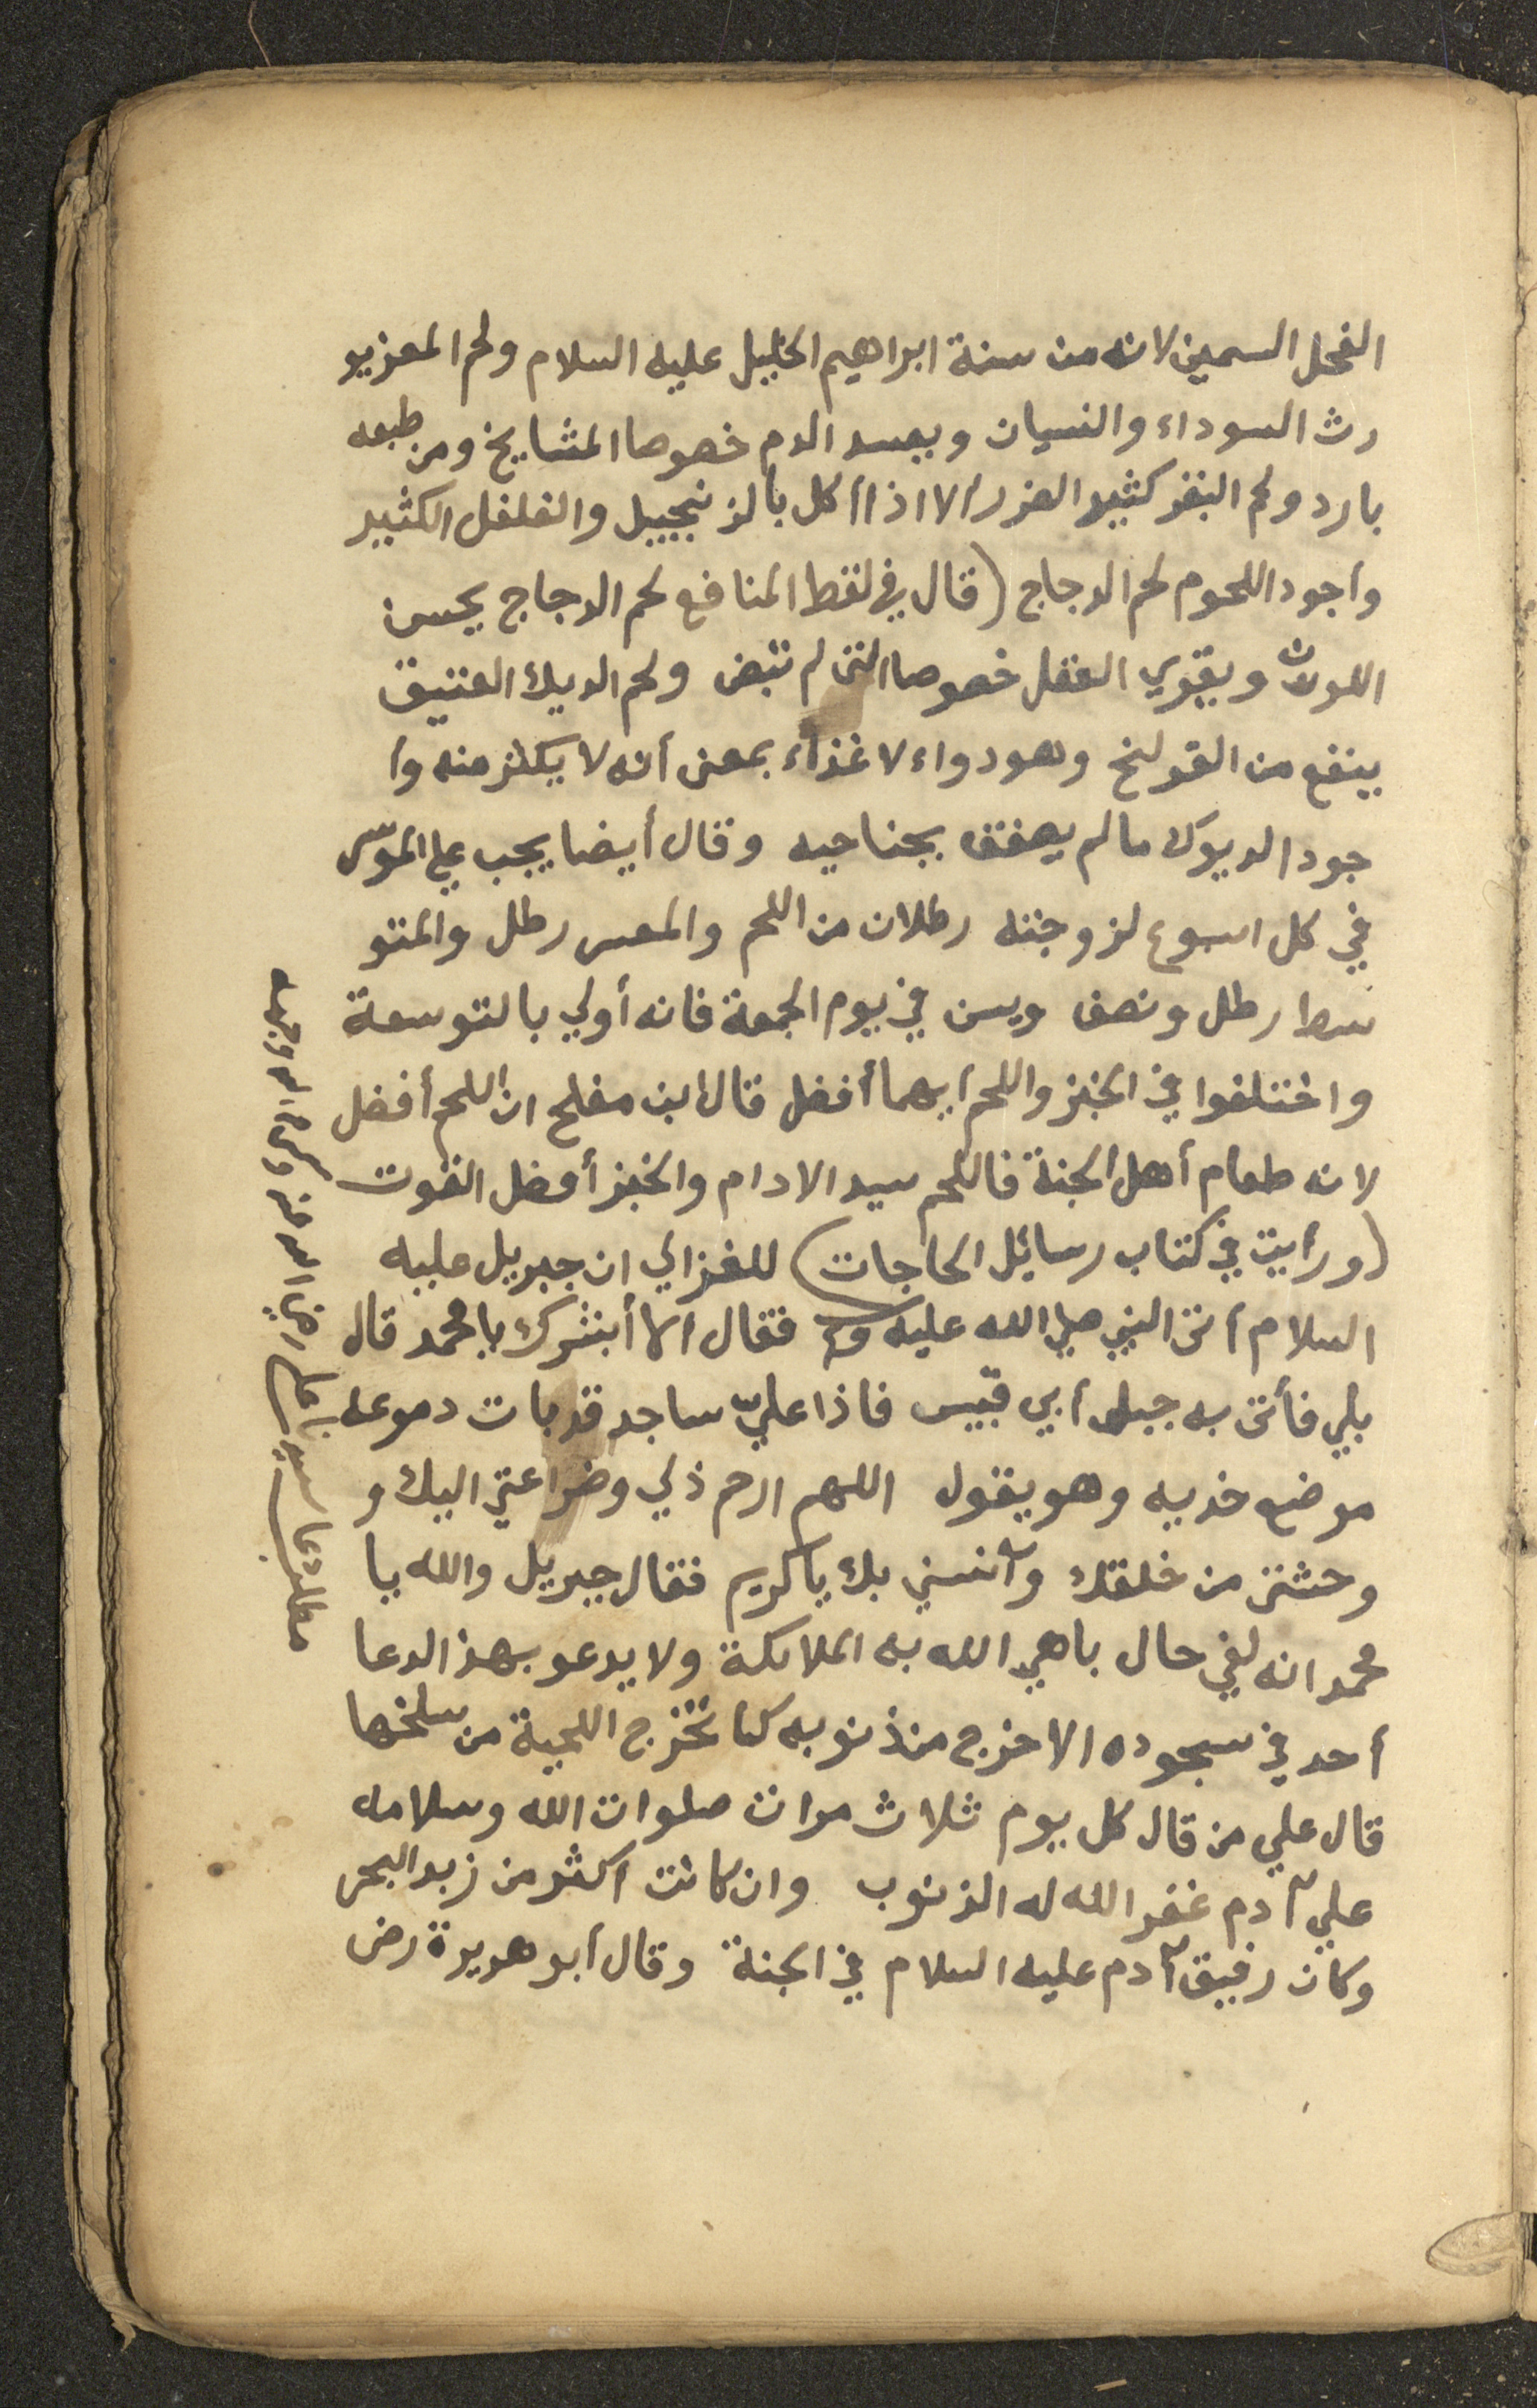 الفحل السمين لانه من سنة ابراهيم الخليل عليه السلام ولحم المعز يو
رث السوداء والنسيان ويفسد الدم خصوصا المشايخ ومن طبعه
بارد ولحم البقر كثير الضرر الا اذا أكل بالزنجبيل والفلفل الكثير
واجود اللحوم لحم الدجاج (قال في لقط المنافع لحم الدجاج يحسن
اللون ويقوي العقل خصوصا التى لم تبض ولحم الديك العتيق
ينفع من القولنج وهو دواء لا غذاء بمعنى أنه لا يكثر منه وا
جود الديوك ما لم يصفق بجناحيه وقال أيضا يجب على الموسر
في كل اسبوع لزوجته رطلان من اللحم والمعسر رطل والمتو
سط رطل ونصف ويسن في يوم الجمعة فانه أولي بالتوسعة
واختلفوا في الخبز واللحم ايهما أفضل قال ابن مفلح ان اللحم أفضل
لانه طعام أهل الجنة فاللحم سيد الادام والخبز أفضل القوت
(ورأيت في كتاب رسائل الحاجات) للغزالي ان جبريل عليه
السلام أتى النبي صلي الله عليه وسلم فقال الا أبشرك يا محمد قال
بلي فأتى به جبل أبي قبيس فاذا عليّ ساجد قد بات دموعه
موضع خديه وهو يقول اللهم ارحم ذلي وضراعتي اليك و
وحشتى من خلقك وآنسني بك يا كريم فقال جبريل والله يا
محمد انه لفي حال باهي الله به الملائكة ولا يدعو بهذ الدعا
أحد في سجوده الا خرج من ذنوبه كما تخرج اللحية من سلخها
قال علي من قال كل يوم ثلاث مرات صلوات الله وسلامه
علي آدم غفر الله له الذنوب وان كانت اكثر من زبد البحر
وكان رفيق آدم عليه السلام في الجنة وقال أبو هريرة رضي
مطلب دعا سيدنا علي رضي الله عنه وكرم الله وجهه